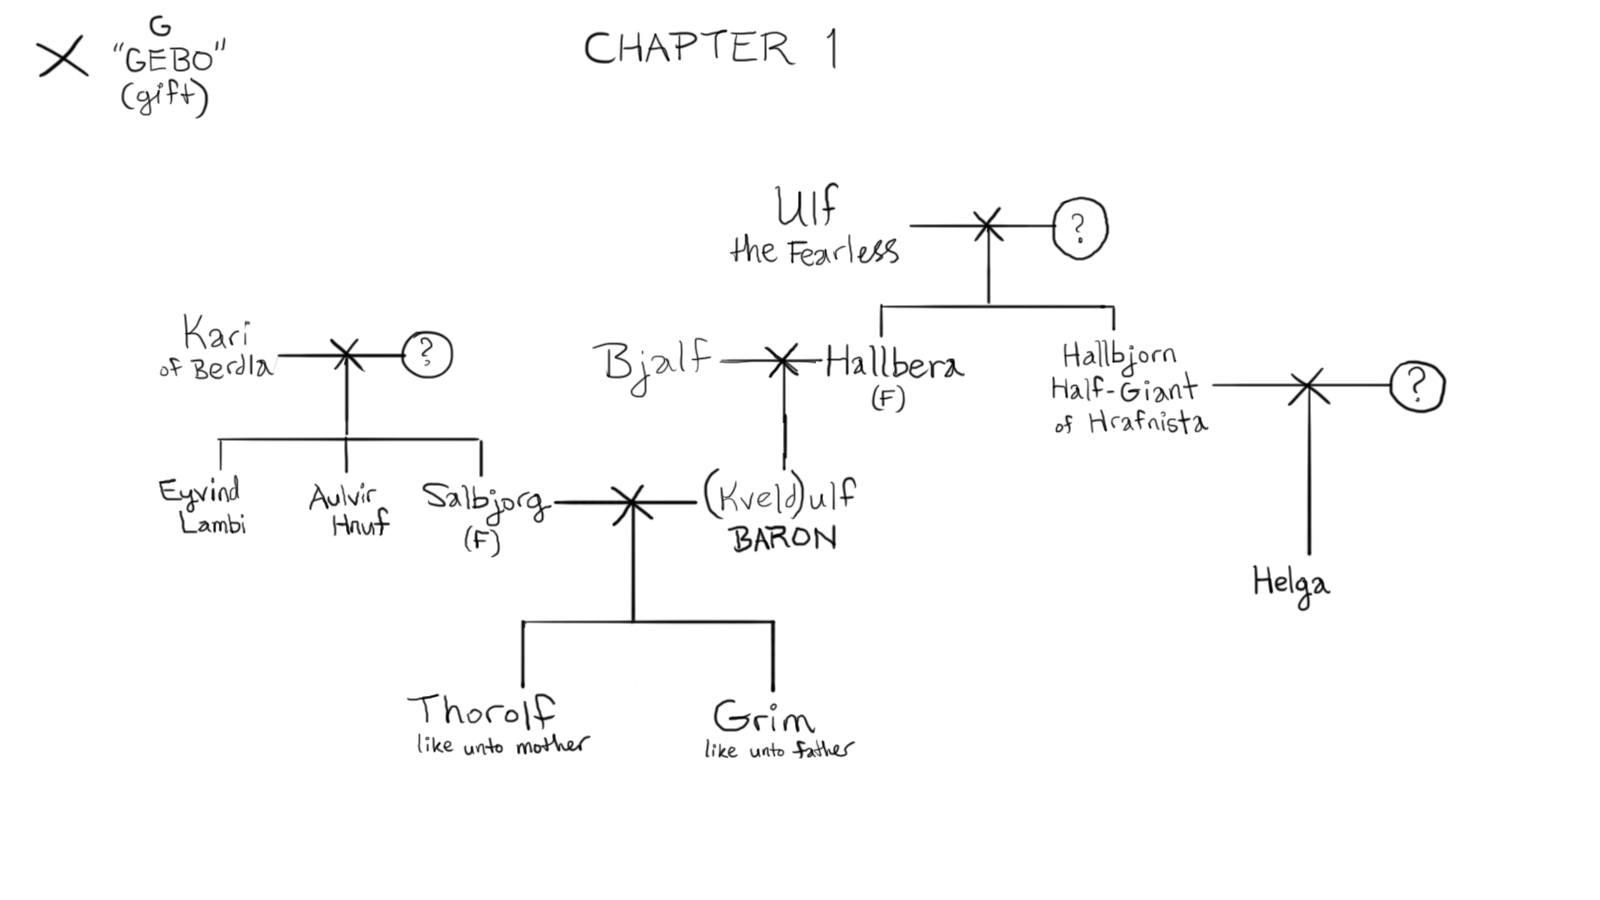 G
"GEBO"
(gift)
CHAPTER 1
Ulf
the Fearless
?
Kari
of Berdla
?
Bjalf
Hallbera
(F)
Hallbjorn
Half-Giant
of Hrafnista
?
Eyvind
Lambi
Aulvir
Hnuf
Salbjorg
(F)
(Kveld)ulf
BARON
Helga
Thorolf
like unto mother
Grim
like unto father